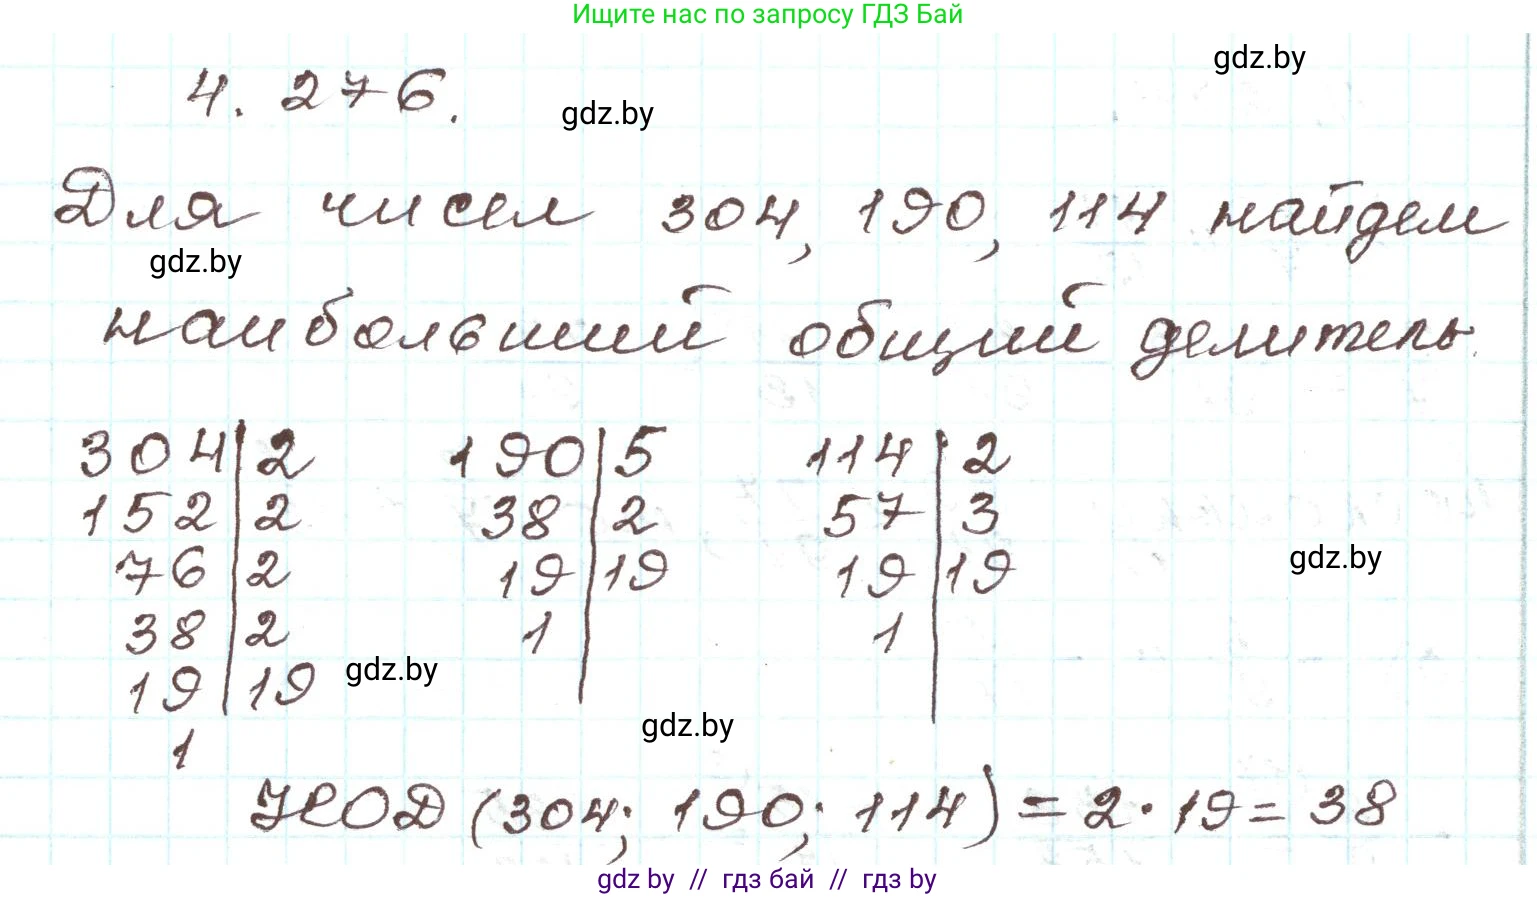 Ищите нас по запросу ГДЗ Бай
gdz.by
4. 276.
gdz.by
Для чисел 304, 190, 114 найдем
gdz.by
наибольший общий делитель.
304|2 190|5 114|2
152|2 38|2 57|3
76|2 19|19 19|19
gdz.by
38|2 1 1
19|19
gdz.by
gdz.by
1
НОД (304; 190; 114) = 2 · 19 = 38
gdz by // гдз бай // гдз by